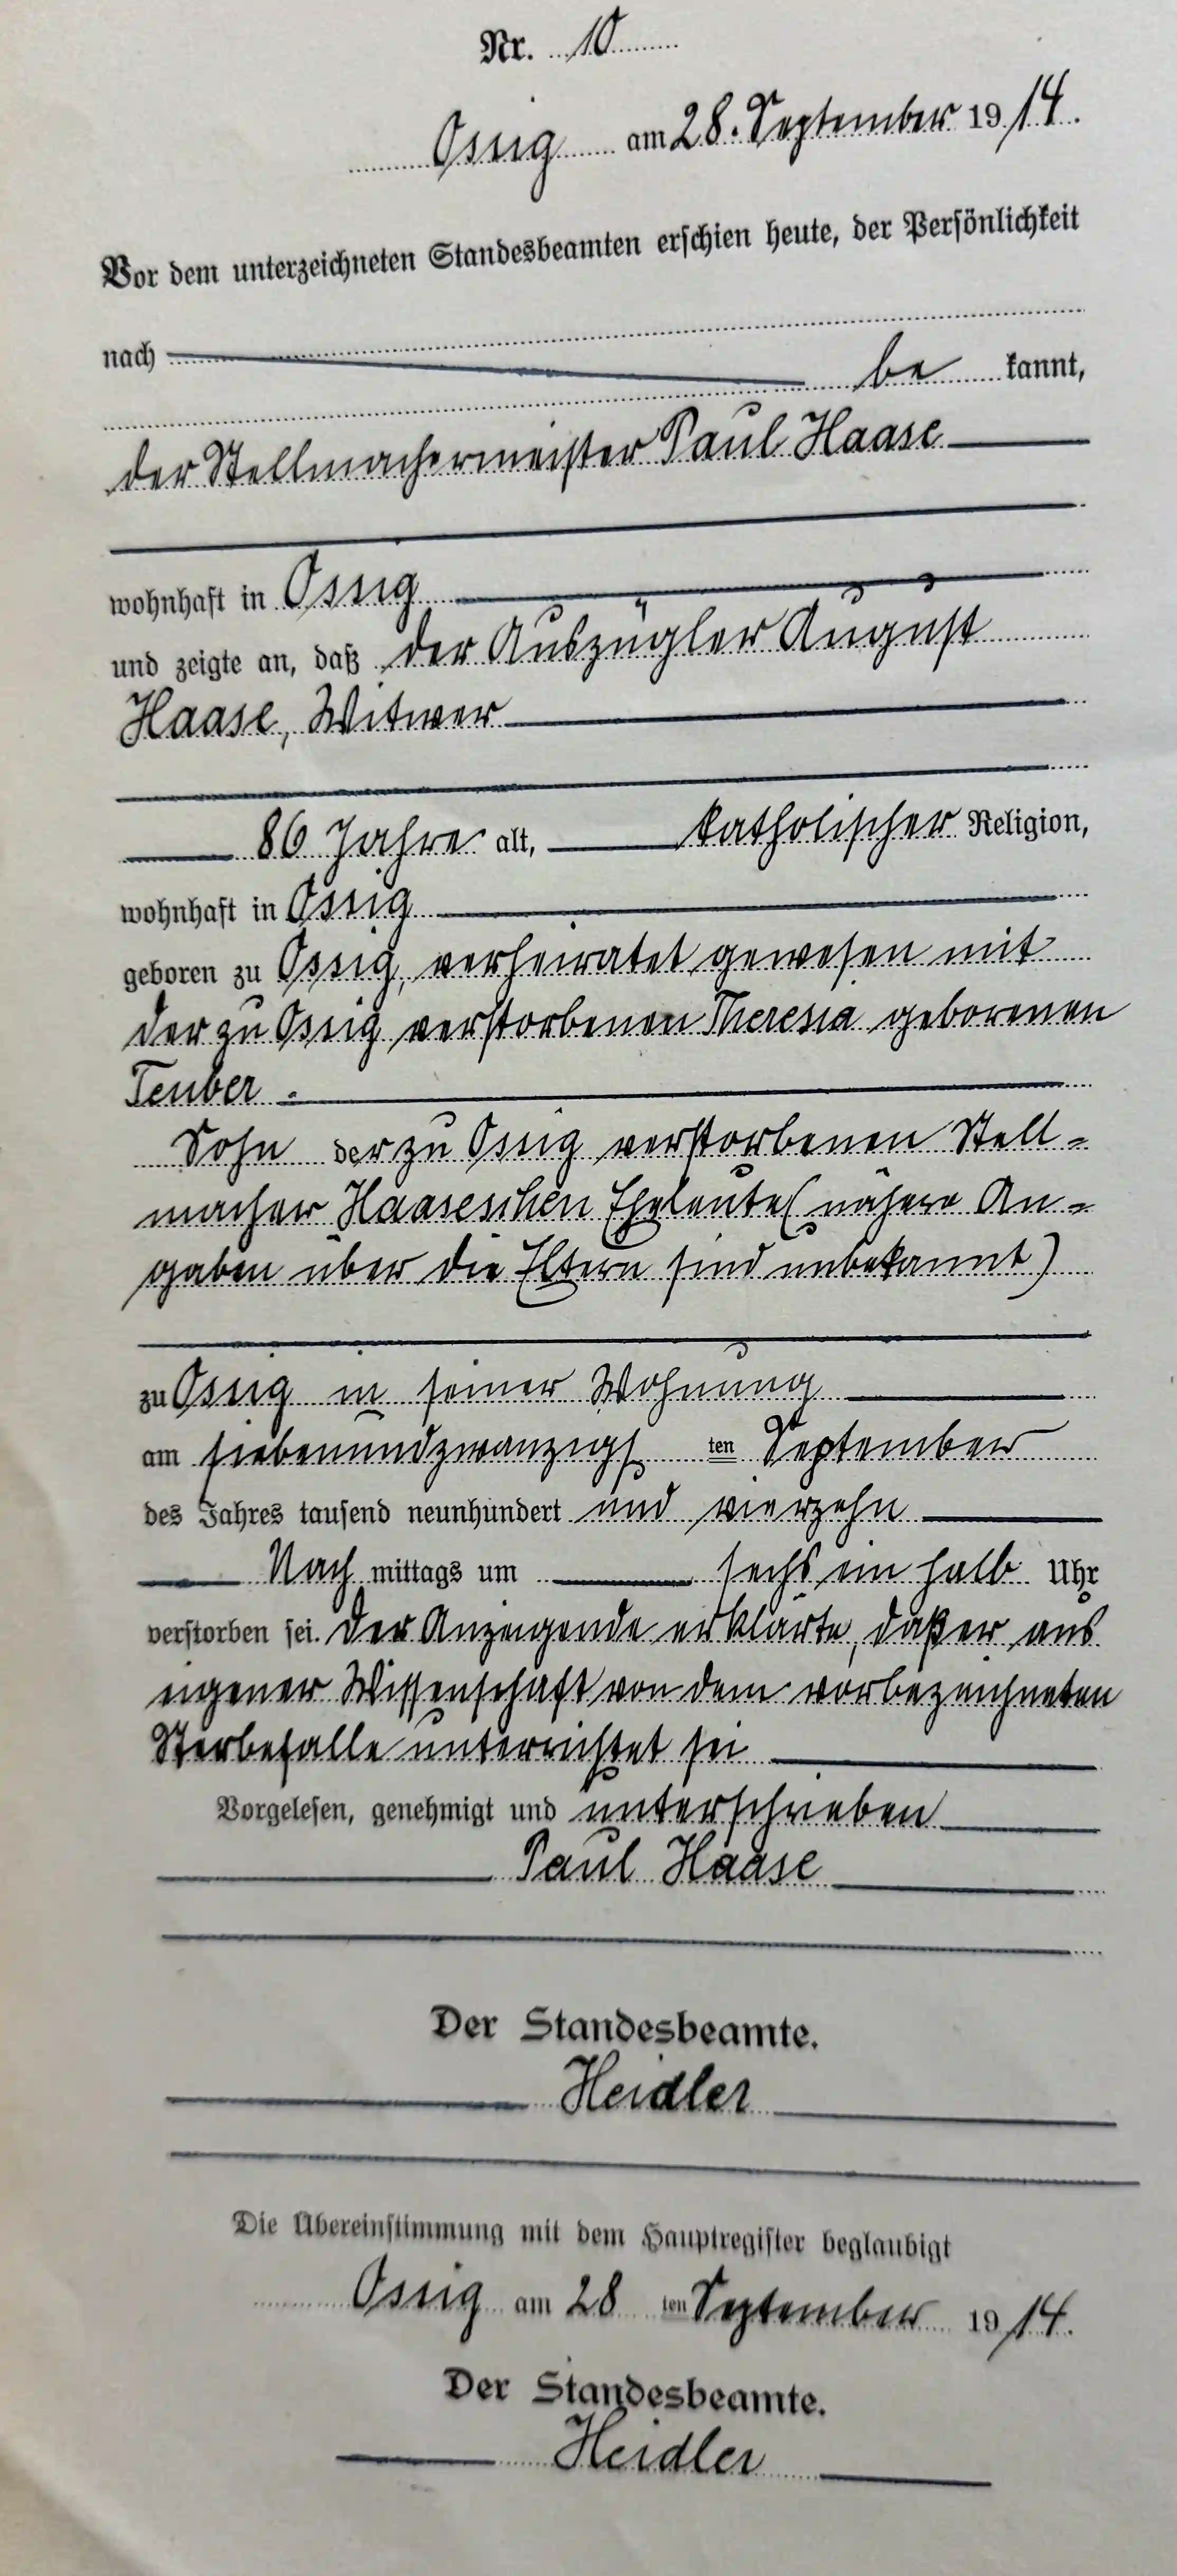 Nr. 10
Ossig am 28. September 1914.
Vor dem unterzeichneten Standesbeamten erschien heute, der Persönlichkeit
nach
be kannt,
der Stellmachermeister Paul Haase
wohnhaft in Ossig
und zeigte an, daß der Auszügler August
Haase, Witwer
86 Jahre alt, katholischer Religion,
wohnhaft in Ossig
geboren zu Ossig, verheiratet gewesen mit
der zu Ossig verstorbenen Theresia geborenen
Teuber.
Sohn der zu Ossig verstorbenen Stell-
macher Haaseschen Eheleute (nähere An-
gaben über die Eltern sind unbekannt)
zu Ossig in seiner Wohnung
am siebenundzwanzigs ten September
des Jahres tausend neunhundert und vierzehn
Nach mittags um sechs ein halb Uhr
verstorben sei. Der Anzeigende erklärte, daß er aus
eigener Wissenschaft von dem vorbezeichneten
Sterbefalle unterrichtet sei
Vorgelesen, genehmigt und unterschrieben
Paul Haase
Der Standesbeamte.
Heidler
Die Übereinstimmung mit dem Hauptregister beglaubigt
Ossig am 28 ten September 1914.
Der Standesbeamte.
Heidler